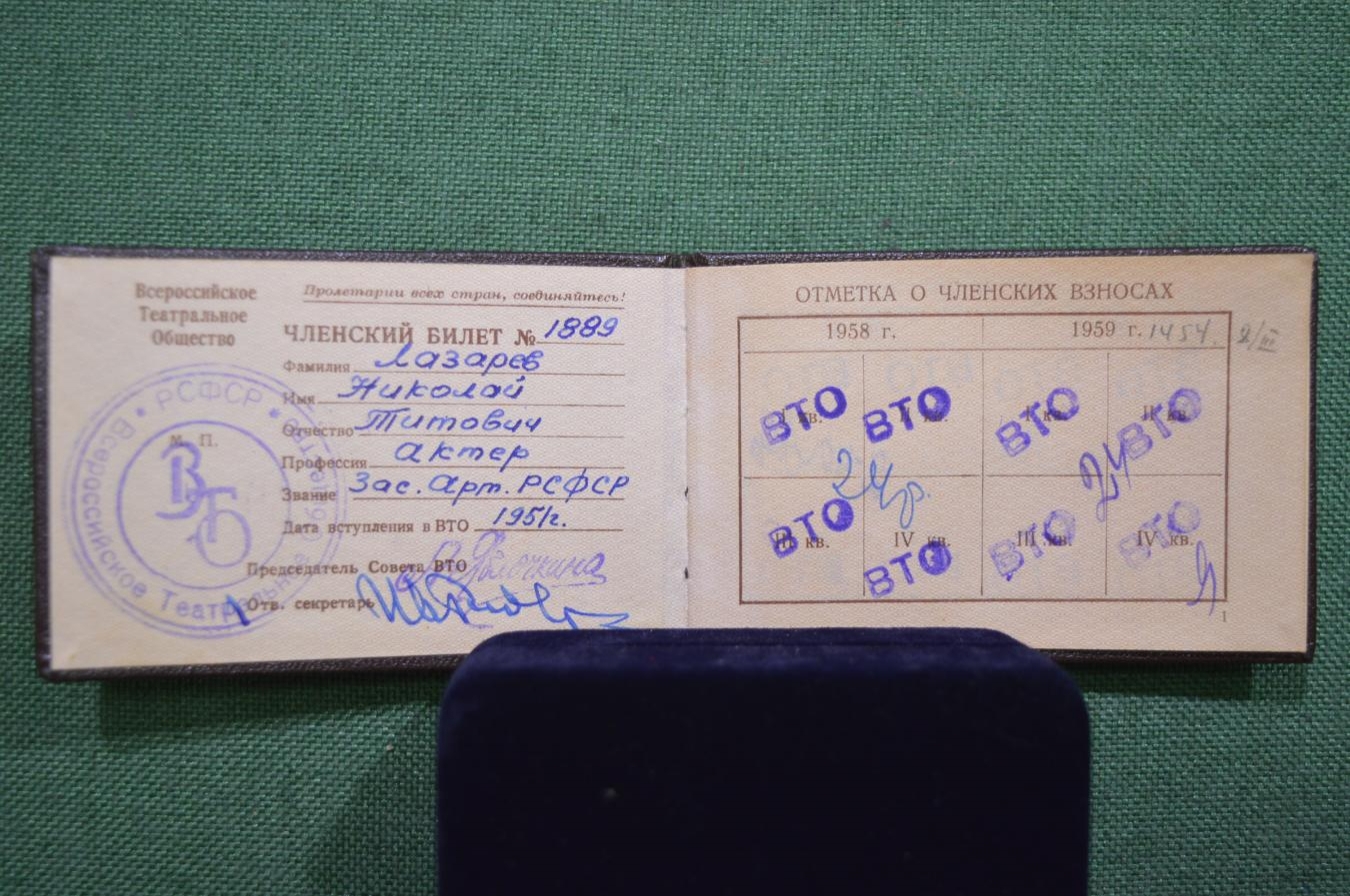 Всероссийское
Театральное
Общество
Пролетарии всех стран, соединяйтесь!
ЧЛЕНСКИЙ БИЛЕТ № 1889
Фамилия Лазарев
Имя Николай
Отчество Титович
Профессия актер
Звание Зас. арт. РСФСР
Дата вступления в ВТО 1951г.
Председатель Совета ВТО А. Яблочкина
Отв. секретарь
М. П.
ВТО
РСФСР
Всероссийское Театральное Общество
ОТМЕТКА О ЧЛЕНСКИХ ВЗНОСАХ
1958 г. 1959 г. 1454.
I кв. II кв. I кв. II кв.
ВТО ВТО ВТО ВТО
24р. 24
III кв. IV кв. III кв. IV кв.
ВТО ВТО ВТО ВТО
1